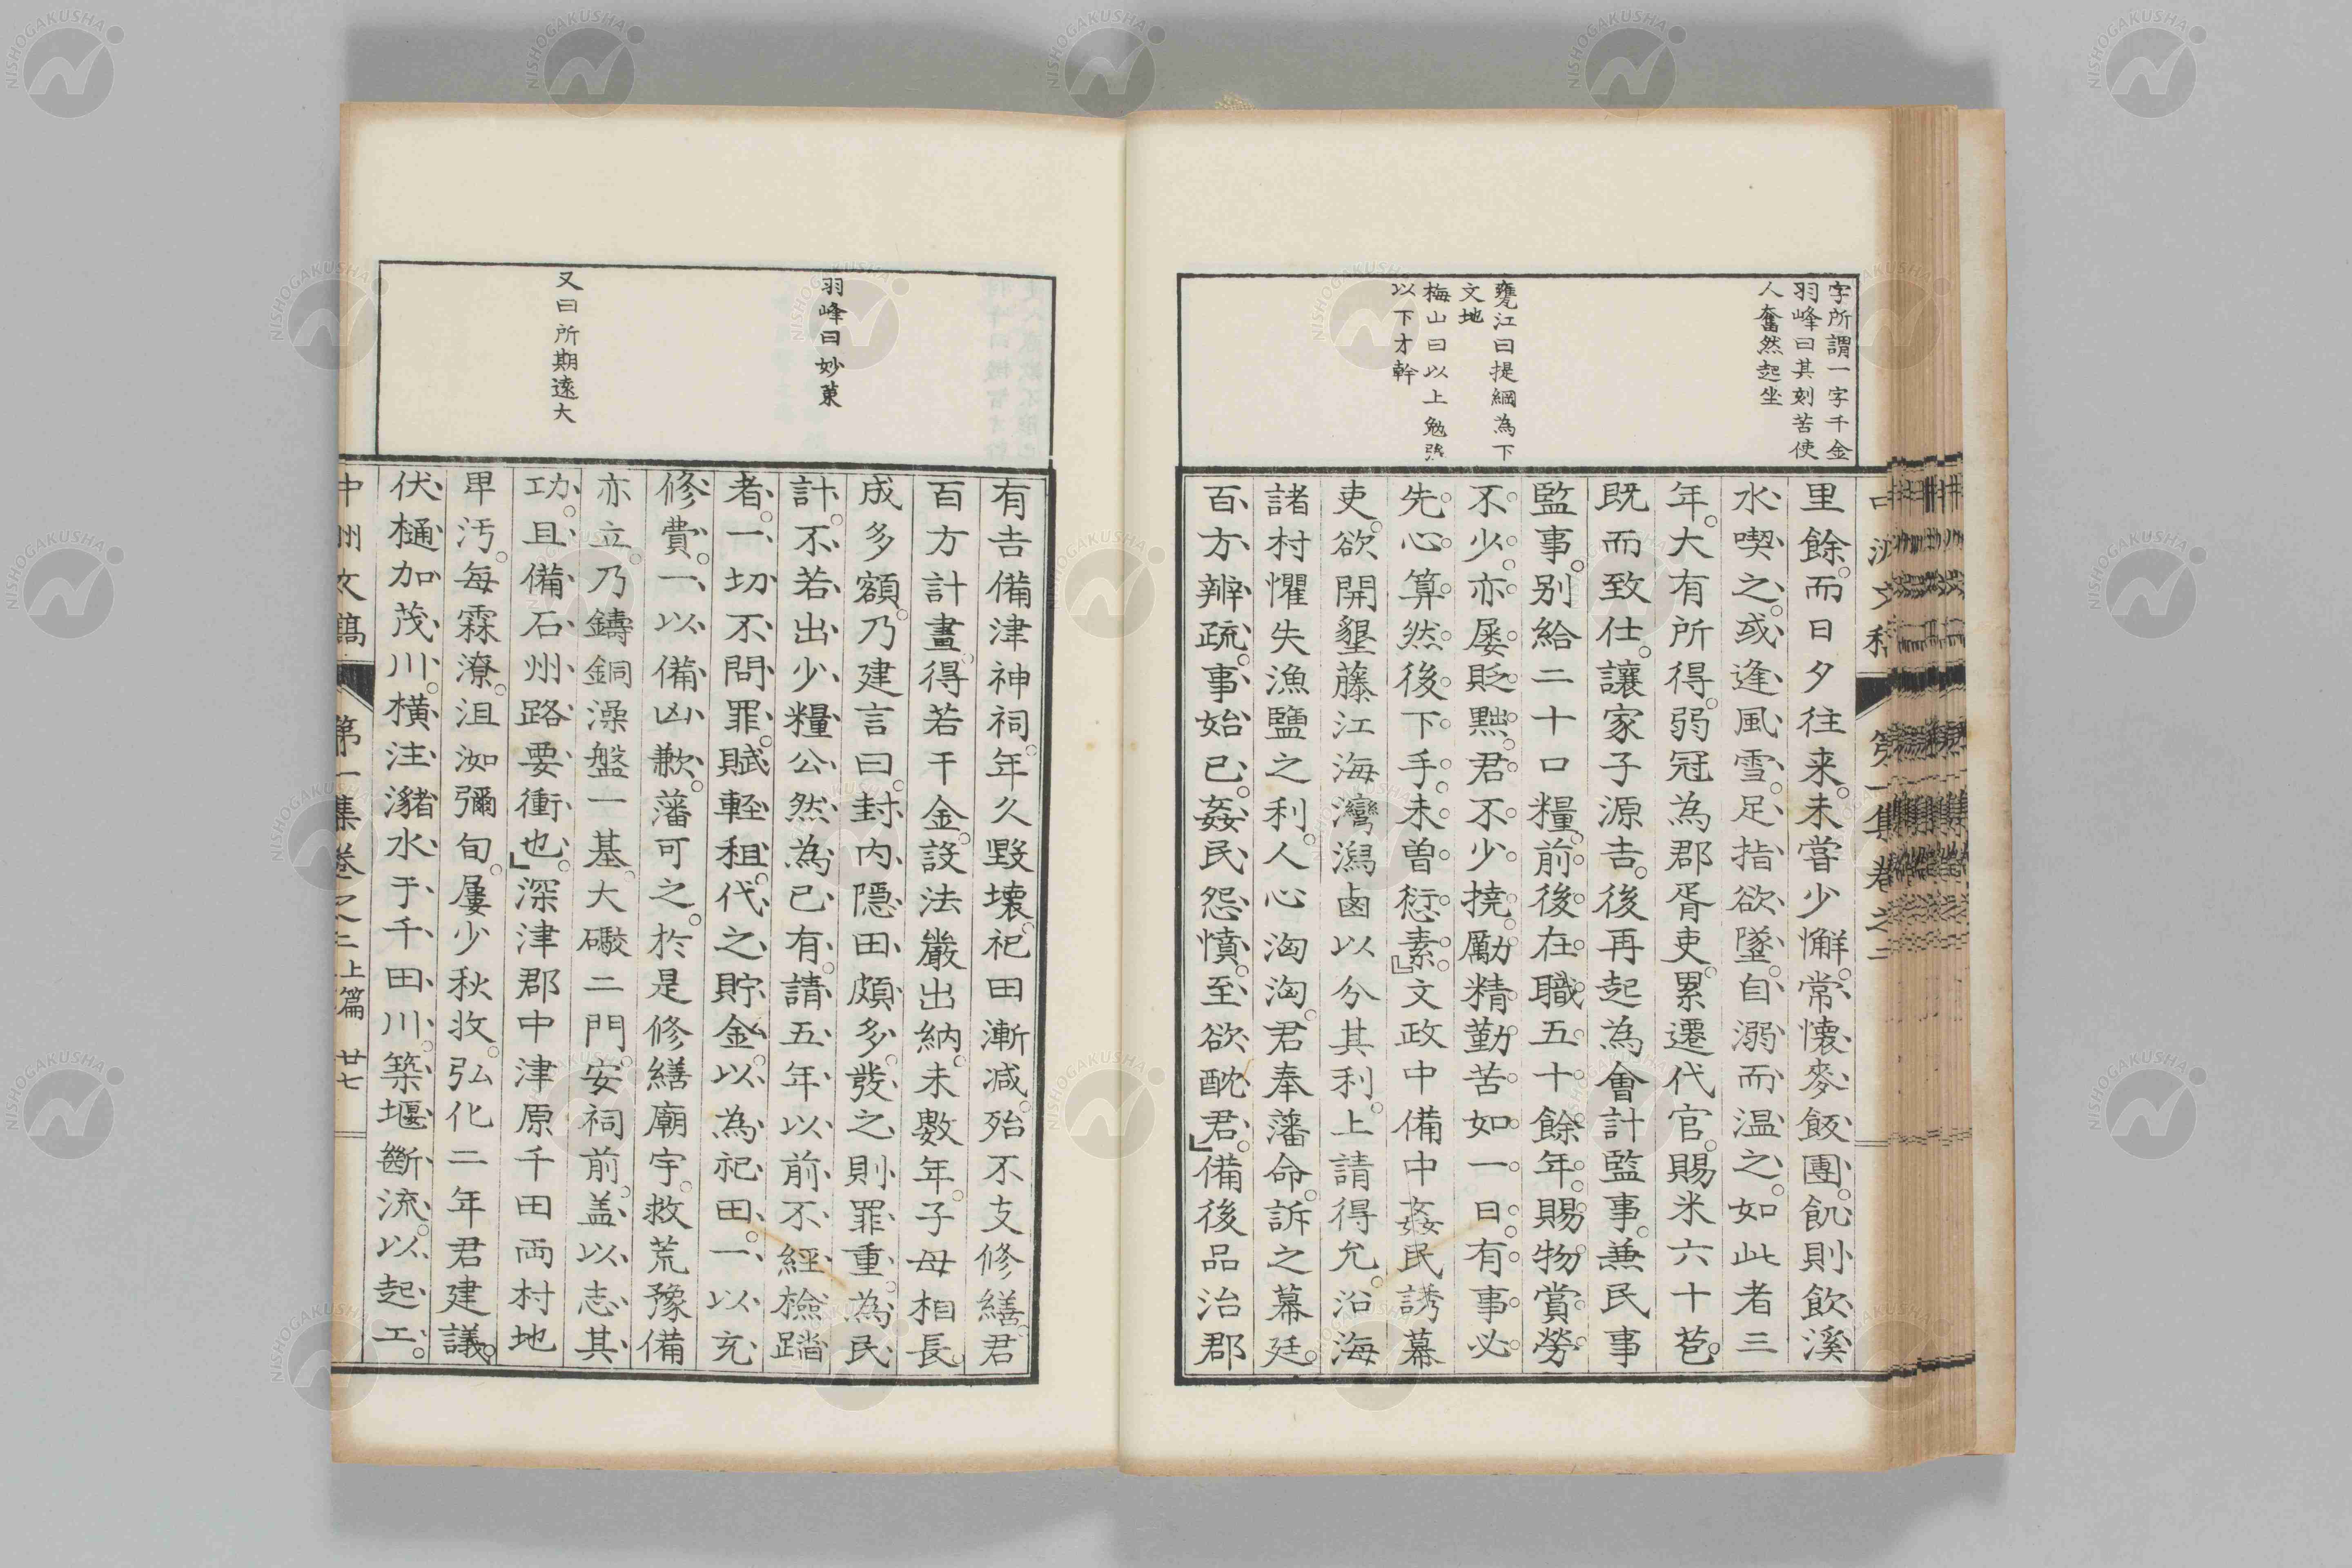 字所謂一字千金
羽峰曰其刻苦使
人奮然起坐
甕江曰提綱為下
文地
梅山曰以上勉强
以下才幹
里餘。而日夕往来。未嘗少懈。常懐麥飯團。飢則飲溪
水喫之。或逢風雪。足指欲墜。自溺而温之。如此者三
年。大有所得。弱冠為郡胥吏。累遷代官。賜米六十苞。
既而致仕。讓家子源吉。後再起為會計監事。兼民事
監事。別給二十口糧。前後在職五十餘年。賜物賞勞
不少。亦屡貶黜。君不少撓。勵精勤苦如一日。有事必
先心算。然後下手。未曽愆素。」文政中備中姦民誘幕
吏。欲開墾藤江海灣潟鹵以分其利。上請得允。沿海
諸村懼失漁鹽之利。人心洶洶。君奉藩命。訴之幕廷。
百方辨疏。事始已。姦民怨憤。至欲酖君。」備後品治郡
羽峰曰妙菓
又曰所期遠大
有吉備津神祠。年久毀壊。祀田漸减。殆不支修繕。君
百方計畫。得若干金。設法嚴出納。未數年。子母相長。
成多額。乃建言曰。封内隠田頗多。發之則罪重。為民
計。不若出少糧公然為已有。請五年以前不經檢踏
者。一切不問罪。賦輕租代之。貯金以為祀田。一以充
修費。一以備凶歉。藩可之。於是修繕廟宇。救荒豫備
亦立。乃鑄銅澡盤一基。大礮二門。安祠前。盖以志其
功。且備石州路要衝也。」深津郡中津原千田両村地
卑汚。毎霖潦。沮洳彌旬。屢少秋收。弘化二年君建議。
伏樋加茂川。横注瀦水于千田川。築堰斷流。以起工。
中州文稿 第一集卷之二 上篇 廿七